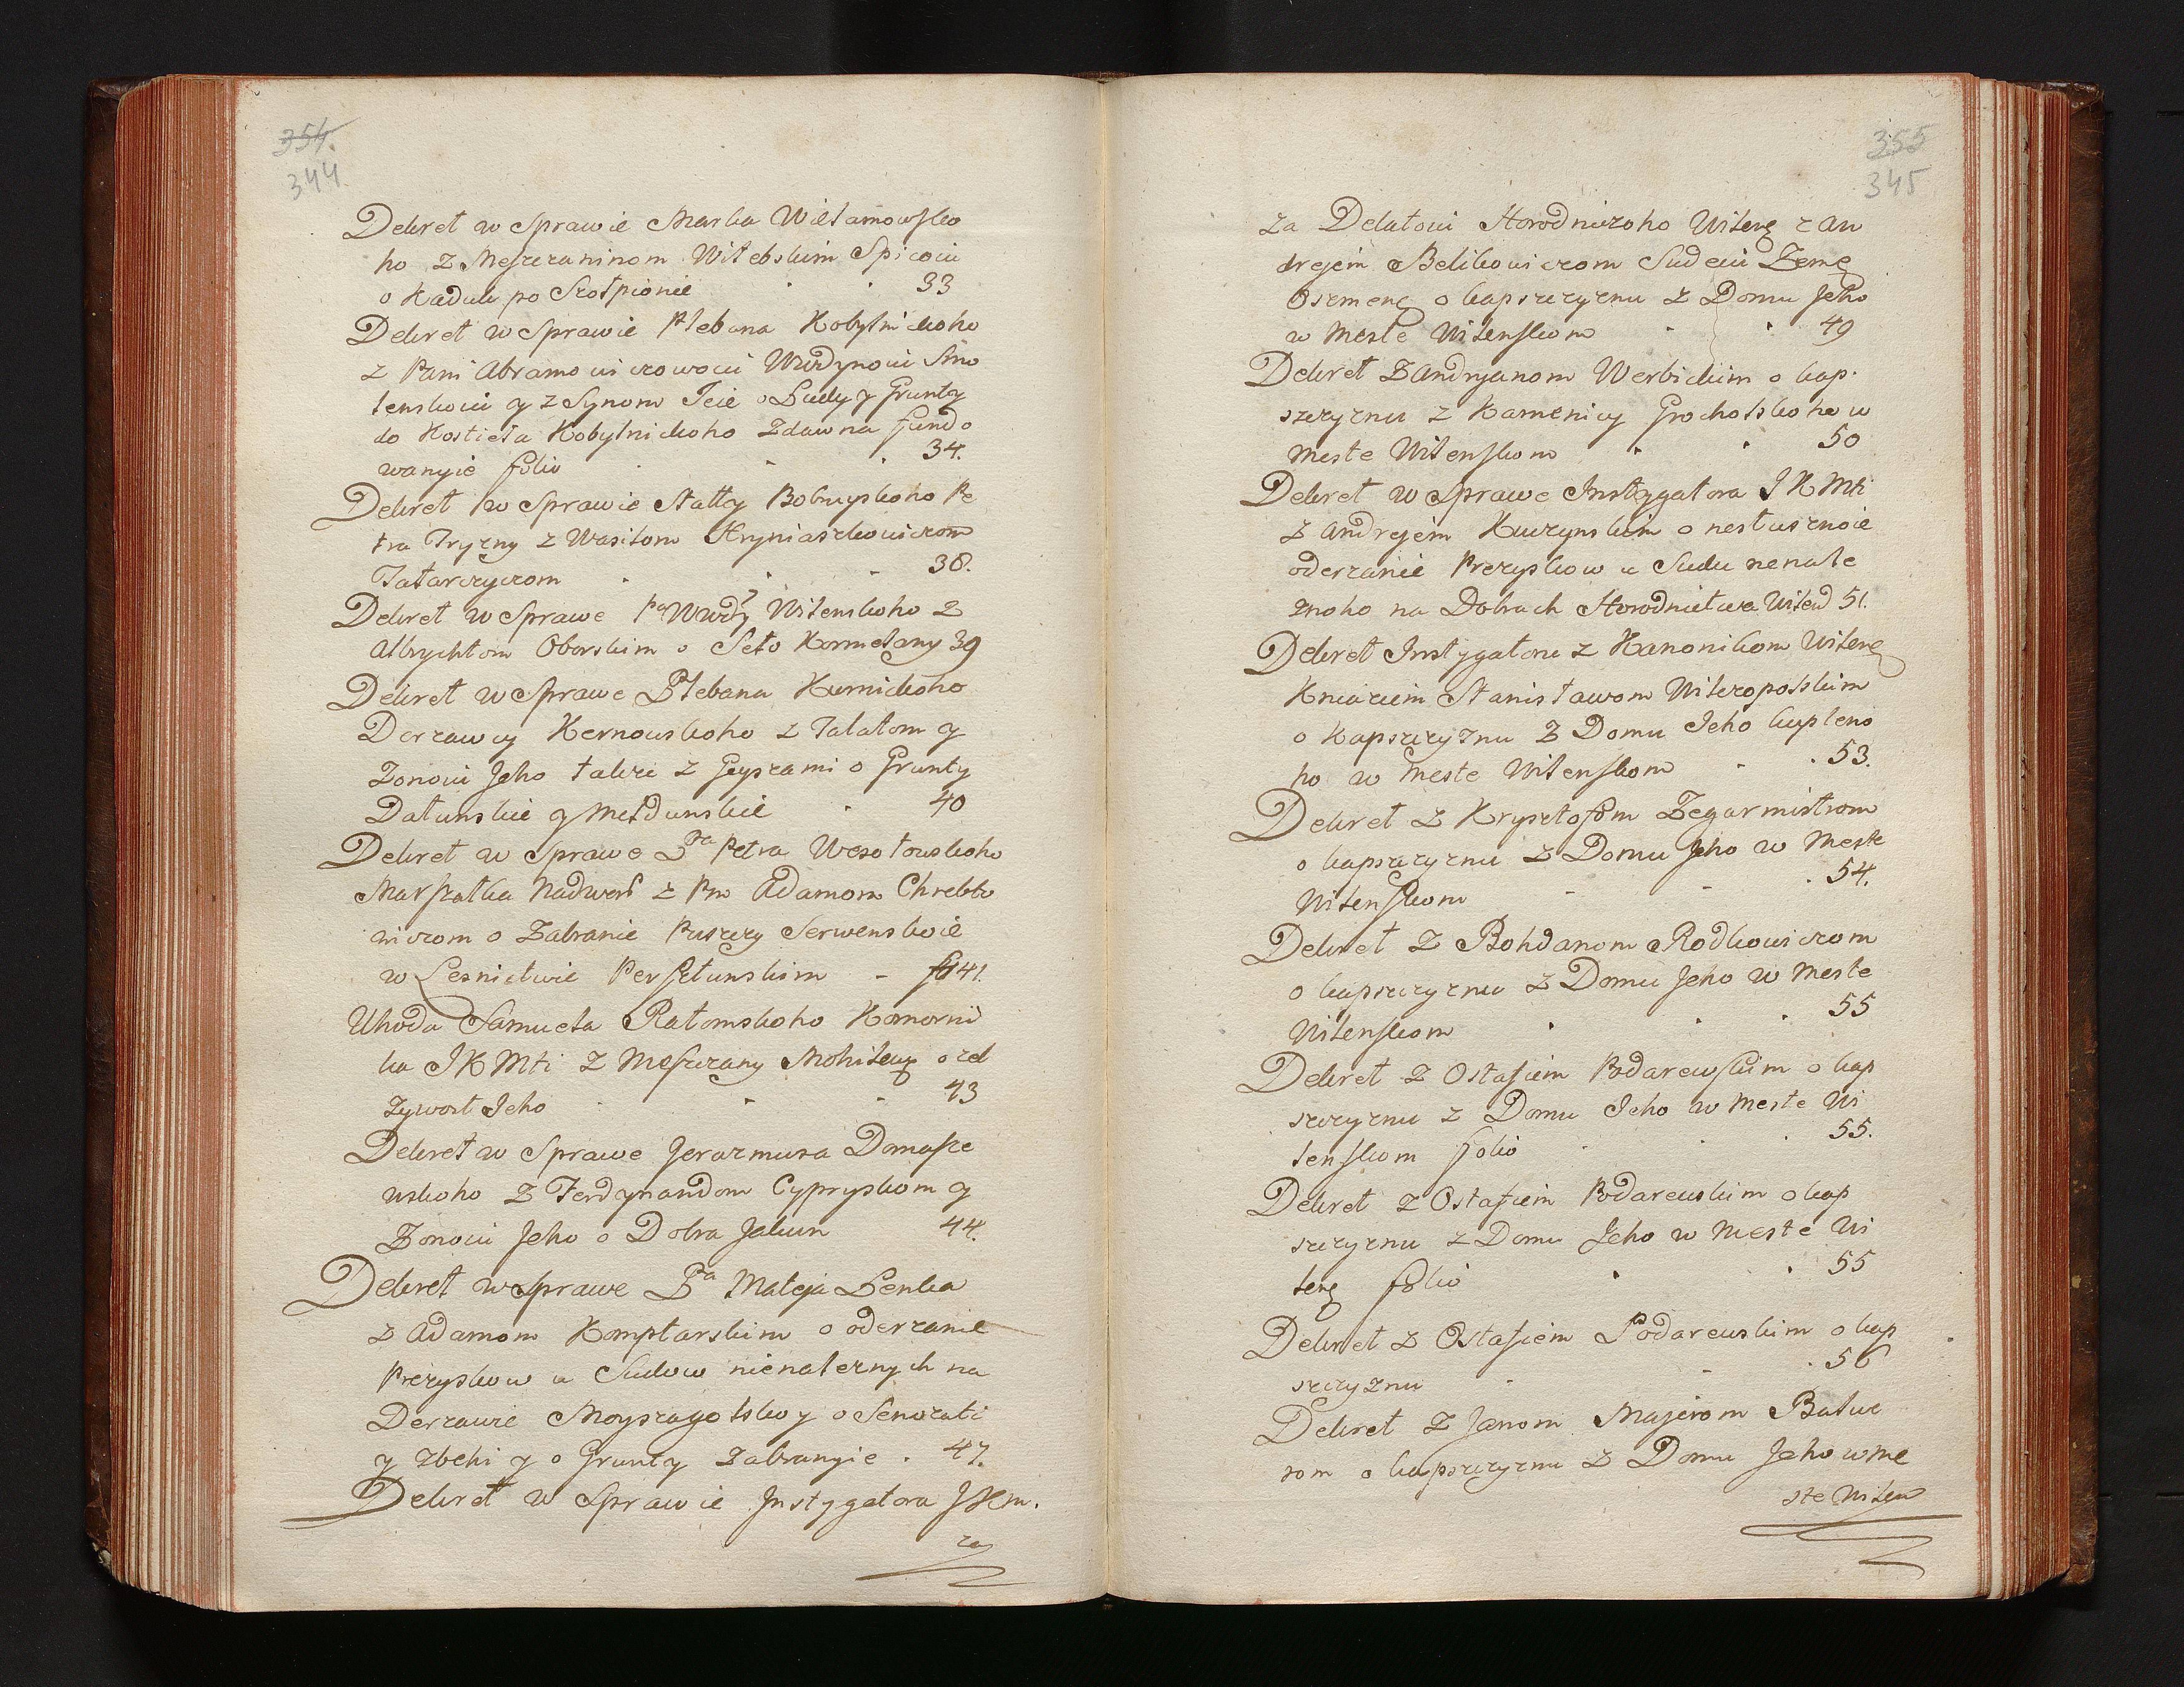 354.
344
Dekret w Sprawie Marka Wiłamowsko
ho z Meszczaninom Witebskim Spicoiu
o Kaduk po Szołpionie 33
Dekret w Sprawie Plebana Kobylnickoho
z Pani Abramowiczowoiu Wwdynoiu Smo
lenskoiu y z Synom Jeie o Ludy y Grunty
do Kosticła Kobylnickoho Zdawna fundo
wanyie folio 34.
Dekret w Sprawie Statty Bobruyskoho Pe
tra Tryzny z Wasilom Hryniaszkowiczom
Tatarczyczom 38.
Dekret w Sprawe Pa Wwdy Wilenskoho z
Albrychtom Oborskim o Seło Kormełany 39
Dekret w Sprawe Plebana Kurnickoho
Derzawcy Kernowskoho z Talatom y
Zonoiu Jeho takze z Geyszami o Grunty
Datunskie y Mełdunskie 40
Dekret w Sprawe Pa Petra Wesołowskoho
Marszałka Nadworn z Pm Adamom Chrebto
wiczom o Zabranie Puszczy Serwenskoie
w Lesnictwie Perszłunskim - fol 41.
Uhoda Samueła Ratomskoho Komorni
ka JKMti z Meszczany Mohilewg o zel
zywost Jeho 43
Dekret w Sprawe Jerazmusa Domasze
wskoho z Ferdynandom Cypryskom y
Zonoiu Jeho o Dobra Jakun 44.
Dekret w Sprawe Pa Mateja Lenka
z Adamom Komptarskim o oderzanie
Przezyskow u Sudow nienaleznych na
Derzawie Moyszagolskoy o Senozati
y zbehi y o Grunty Zabranyie. 47.
Dekret w Sprawie Instygatora JKm.
za
355
345
za Delatoiu Horodniczoho Wileng z An
drejem Belikowiczom Sudeiu Zemg
Oszmeng o kapszczyznu z Domu Jeho
w Meste Wilenskom 49
Dekret Z Andryanom Werbickim o kap
szczyznu z Kamenicy Grocholskoho w
Meste Wilenskom 50
Dekret w Sprawe Instygatora JKMti
z Andrejem Kurzynskim o nesłusznoie
oderzanie Przezyskow u Sudu nenale
znoho na Dobrach Horodnictwa Wilen 51.
Dekret Instygatora z Kanonikom Wileng
Kniaziem Stanisławom Wilczopolskim
o Kapszczyznu Z Domu Jeho kupleno
ho w Meste Wilenskom 53.
Dekret z Krysztofom Zegarmistrom
o kapszczyznu z Domu Jeho w Meste
Wilenskom 54.
Dekret Z Bohdanom Rodkowiczom
o kapszczyznu z Domu Jeho w Meste
Wilenskom 55
Dekret z Ostafiem Podarewskim o kap
szczyznu z Domu Jeho w Meste Wi
lenskom folio 55.
Dekret z Ostafiem Podarewskim o kap
szczyznu z Domu Jeho w Meste Wi
leng folio 55
Dekret z Ostafiem Podarewskim o kap
szczyznu 56
Dekret Z Janom Majerom Balwe
rom o kapszczyznu z Domu Jeho w Me
ste Wilen